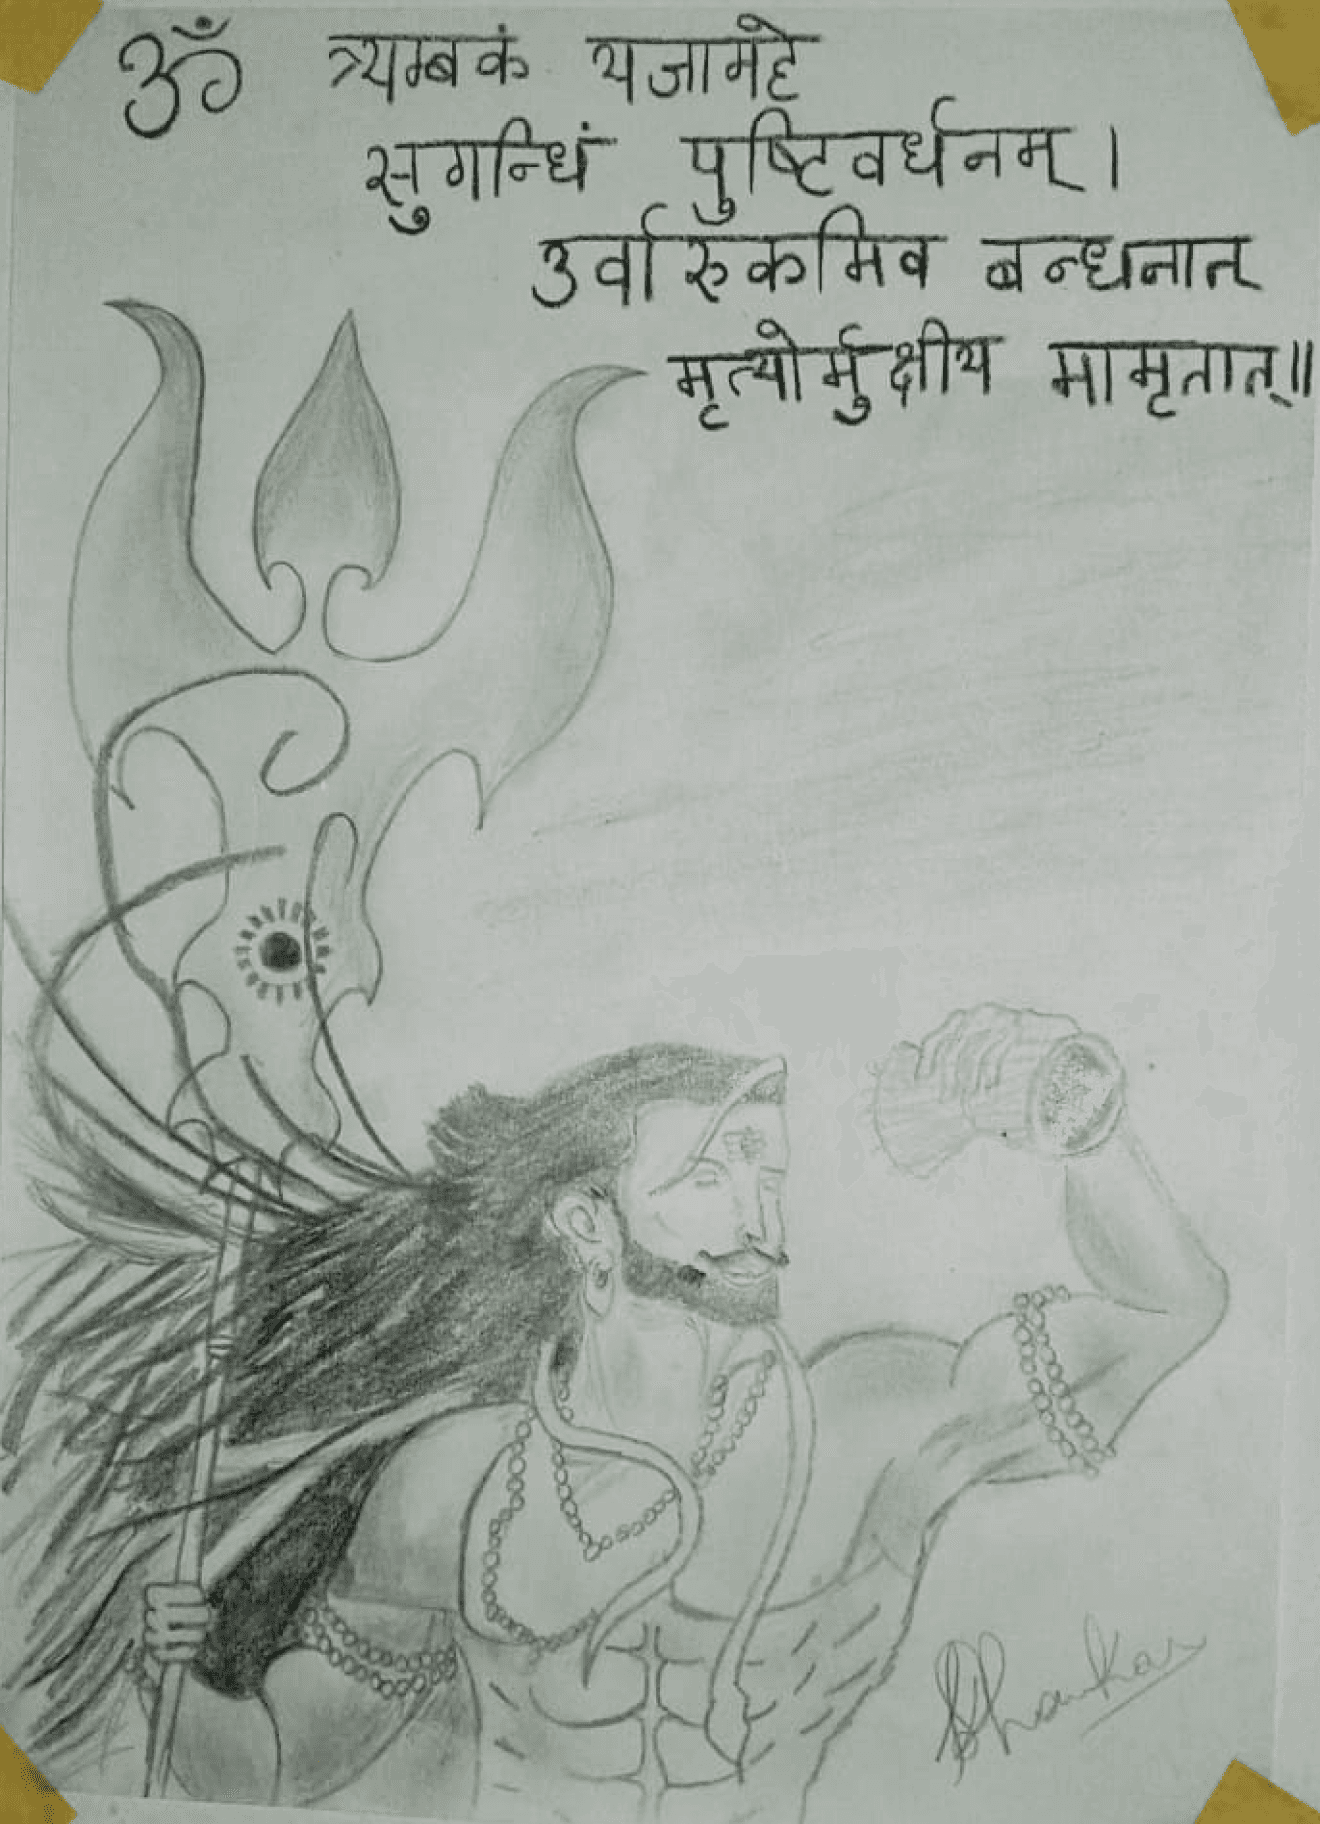 ॐ त्र्यम्बकं यजामहे
सुगन्धिं पुष्टिवर्धनम् ।
उर्वारुकमिव बन्धनात्
मृत्योर्मुक्षीय मामृतात् ॥
Shankar